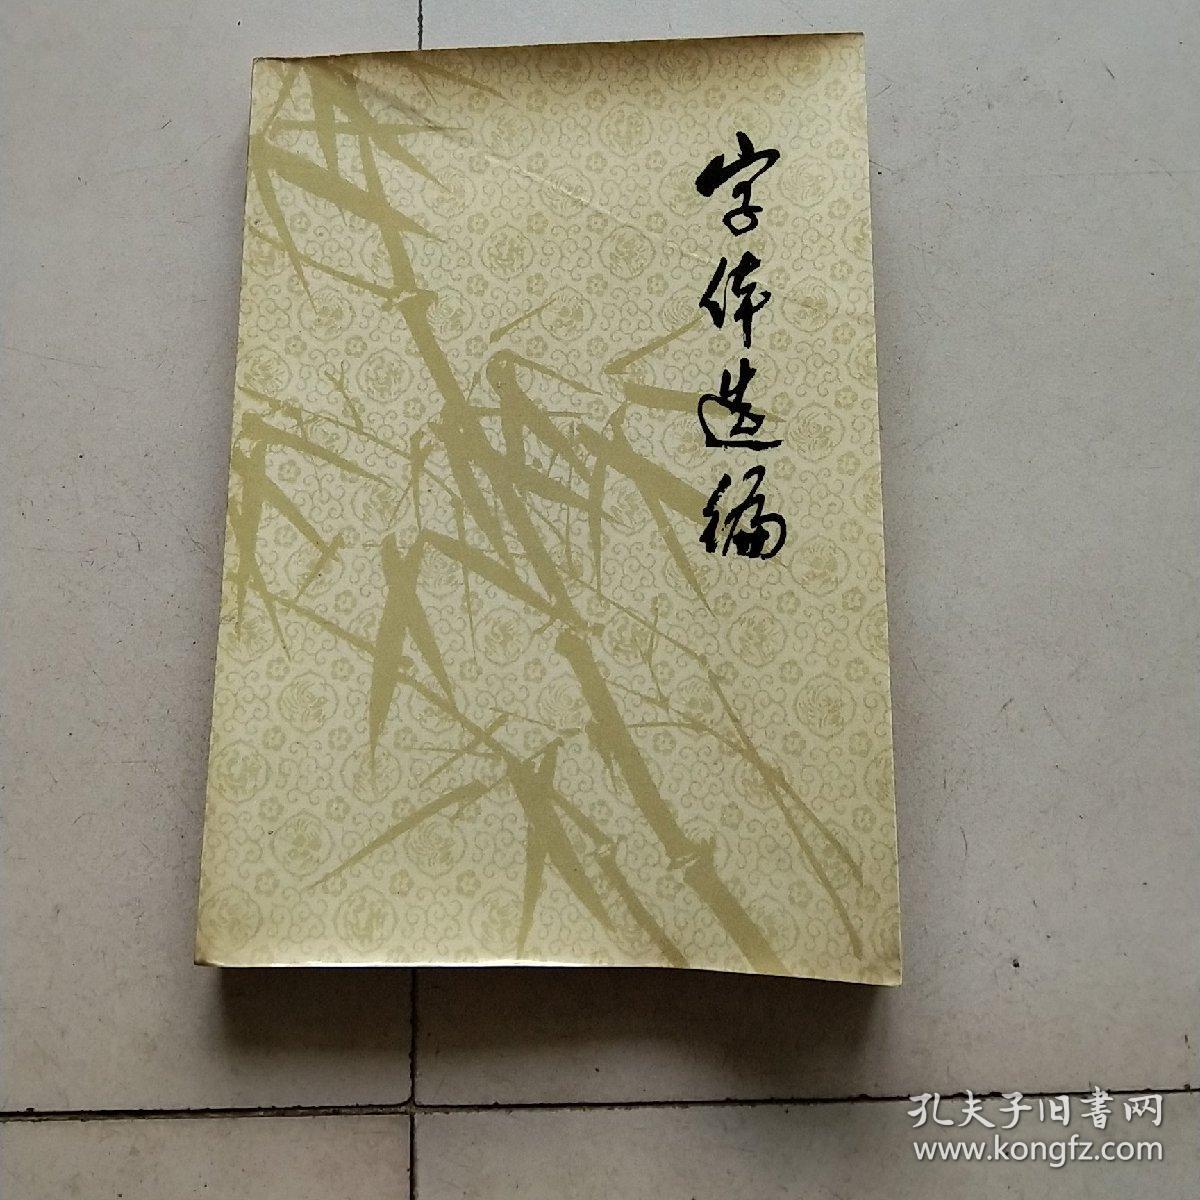 字体选编
孔夫子旧書网
www.kongfz.com